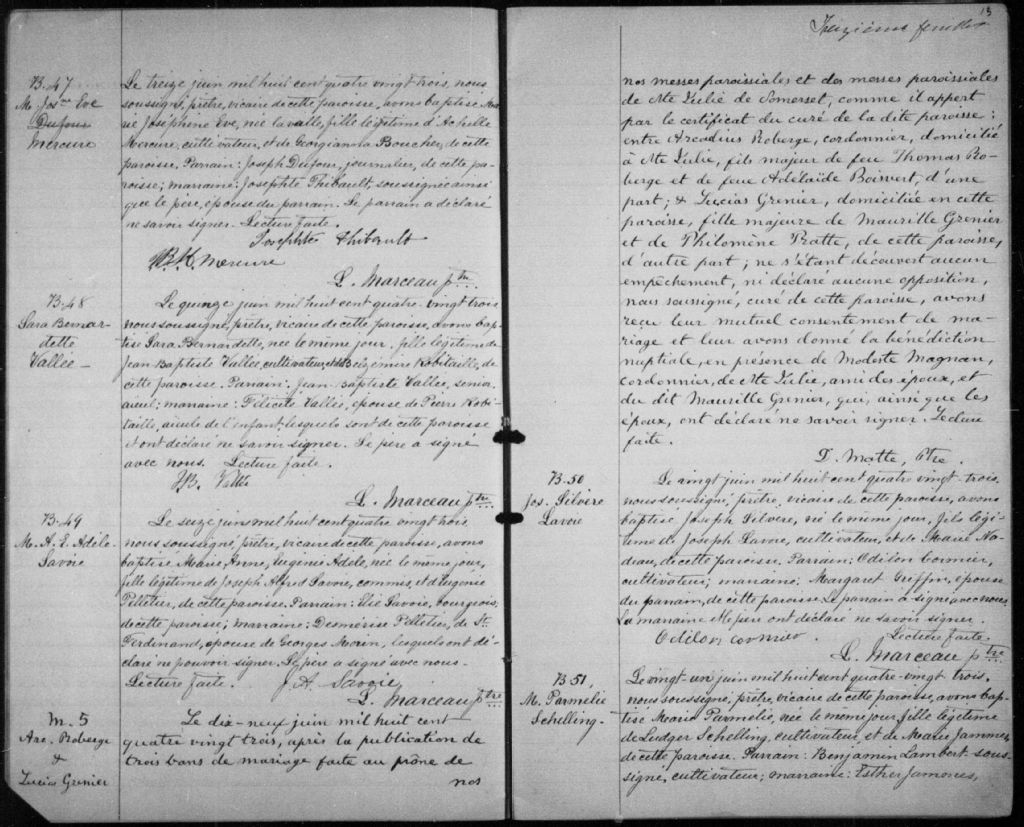 B. 47
M. Jos.ne Eve
Dufour
Mercure
Le treize juin mil huit cent quatre vingt trois, nous
soussigné, prêtre, vicaire de cette paroisse, avons baptisé Ma-
rie Joséphine Eve, née la veille, fille légitime d'Achille
Mercure, cultivateur, et de Georgianna Boucher, de cette
paroisse. Parrain: Joseph Dufour, journalier, de cette pa-
roisse; marraine: Josephte Thibault, soussignée ainsi
que le père, épouse du parrain. Le parrain a déclaré
ne savoir signer. Lecture faite.
Josephte Thibault
Mercure
L. Marceau ptre.
B. 48
Sara Bernar-
dette
Vallée
Le quinze juin mil huit cent quatre-vingt trois
nous soussigné, prêtre, vicaire de cette paroisse, avons bap-
tisé Sara Bernardette, née le même jour, fille légitime de
Jean Baptiste Vallée, cultivateur, et de Belzémire Robitaille, de
cette paroisse. Parrain: Jean-Baptiste Vallée, senior
aieul; marraine: Félicité Vallée, épouse de Pierre Robi-
taille, aieule de l'enfant lesquels sont de cette paroisse
et ont déclaré ne savoir signer. Le père a signé
avec nous. Lecture faite.
JB. Vallée
L. Marceau ptre
B. 49
M. A. E. Adèle
Savoie
Le seize juin mil huit cent quatre vingt trois
nous soussigné, prêtre, vicaire de cette paroisse, avons
baptisé Marie Anne, Eugenie Adèle, née le même jour,
fille légitime de Joseph Alfred Savoie, commis, et d'Eugenie
Pelletier, de cette paroisse. Parrain: Elié Savoie, bourgeois,
de cette paroisse; marraine: Desmérise Pelletier, de St.
Ferdinand, épouse de Georges Morin, lesquels ont dé-
claré ne pouvoir signer. Le père a signé avec nous.
Lecture faite. J. A. Savoie
L. Marceau ptre
M. 5
Arc. Roberge
&
Lucias Grenier
Le dix-neuf juin mil huit cent
quatre vingt trois, après la publication de
trois bans de mariage faite au prône de
nos
13
Treizième feuillet
nos messes paroissiales et des messes paroissiales
de Ste Julie de Somerset, comme il appert
par le certificat du curé de la dite paroisse:
entre Arcadius Roberge, cordonnier, domicilié
à Ste Julie, fils majeur de feu Thomas Ro-
berge et de feue Adélaïde Boisvert, d'une
part; & Lucias Grenier, domiciliée en cette
paroisse, fille majeure de Maurille Grenier
et de Philomène Pratte, de cette paroisse,
d'autre part; ne s'étant découvert aucun
empêchement, ni déclaré aucune opposition,
nous soussigné, curé de cette paroisse, avons
reçu leur mutuel consentement de ma-
riage et leur avons donné la bénédiction
nuptiale, en présence de Modeste Magnan,
cordonnier, de Ste Julie, ami des époux, et
du dit Maurille Grenier, qui, ainsi que les
époux, ont déclaré ne savoir signer. Lecture
faite.
D. Matte, Ptre.
B. 50
Jos. Silvère
Savoie
Le vingt juin mil huit cent quatre vingt-trois
nous soussigné, prêtre, vicaire de cette paroisse, avons
baptisé Joseph Silvère, né le même jour, fils légi-
time de Joseph Savoie, cultivateur, et de Marie Na-
deau, de cette paroisse. Parrain: Odilon Cormier,
cultivateur; marraine: Margaret Griffin, épouse
du parrain, de cette paroisse. Le parrain a signé avec nous.
La marraine et le père ont déclaré ne savoir signer.
Odilon Cormier. Lecture faite.
L. Marceau ptre
B. 51,
M. Parmélie
Schelling
Le vingt un juin mil huit cent quatre-vingt trois,
nous soussigné, prêtre, vicaire de cette paroisse, avons bap-
tisé Marie Parmélie, née le même jour, fille légitime
de Ludger Schelling, cultivateur, et de Marie Jammes,
de cette paroisse. Parrain: Benjamin Lambert sous-
signé, cultivateur; marraine: Esther Jamones,